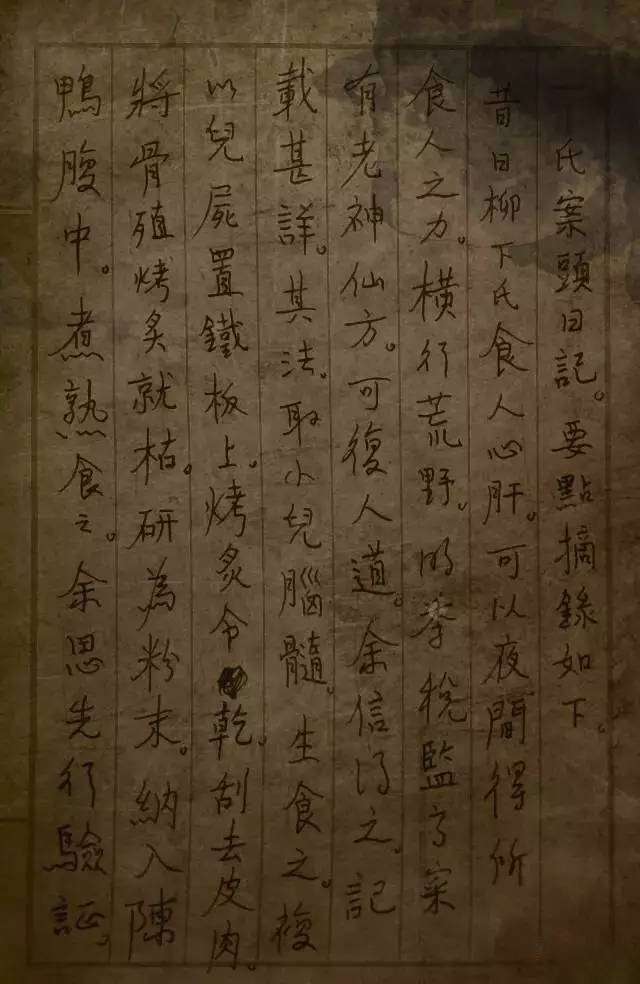 氏案頭日記。要點摘錄如下。
昔日柳下氏食人心肝。可以夜間得所
食人之力。橫行荒野。明季稅監高寀
有老神仙方。可復人道。余信得之。記
載甚詳。其法。取小兒腦髓。生食之。複
以兒屍置鐵板上。烤炙令乾。刮去皮肉。
將骨殖烤炙就枯。研為粉末。納入陳
鴨腹中。煮熟食之。余思先行驗証。